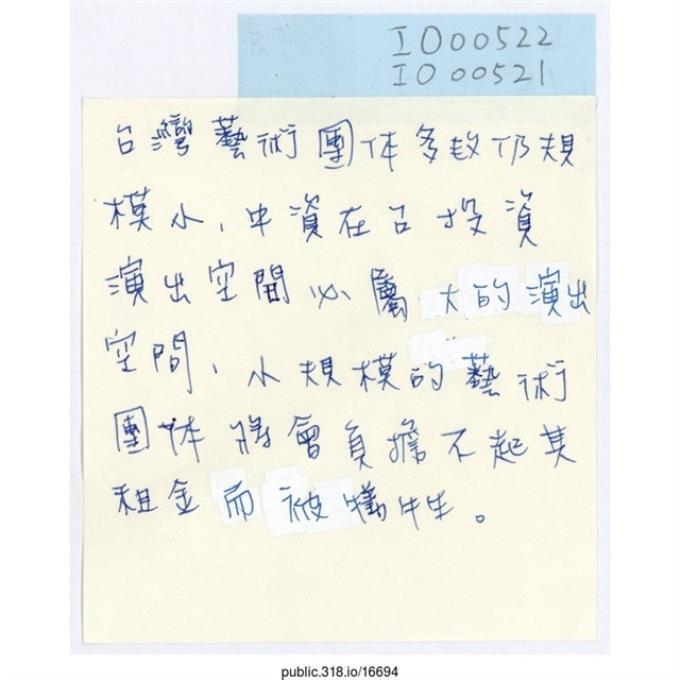 IO00522
IO00521
台灣藝術團体多数仍規
模小,中資在台投資
演出空間必屬大的演出
空間,小規模的藝術
團体將會負擔不起其
租金而被犧牲。
public.318.io/16694